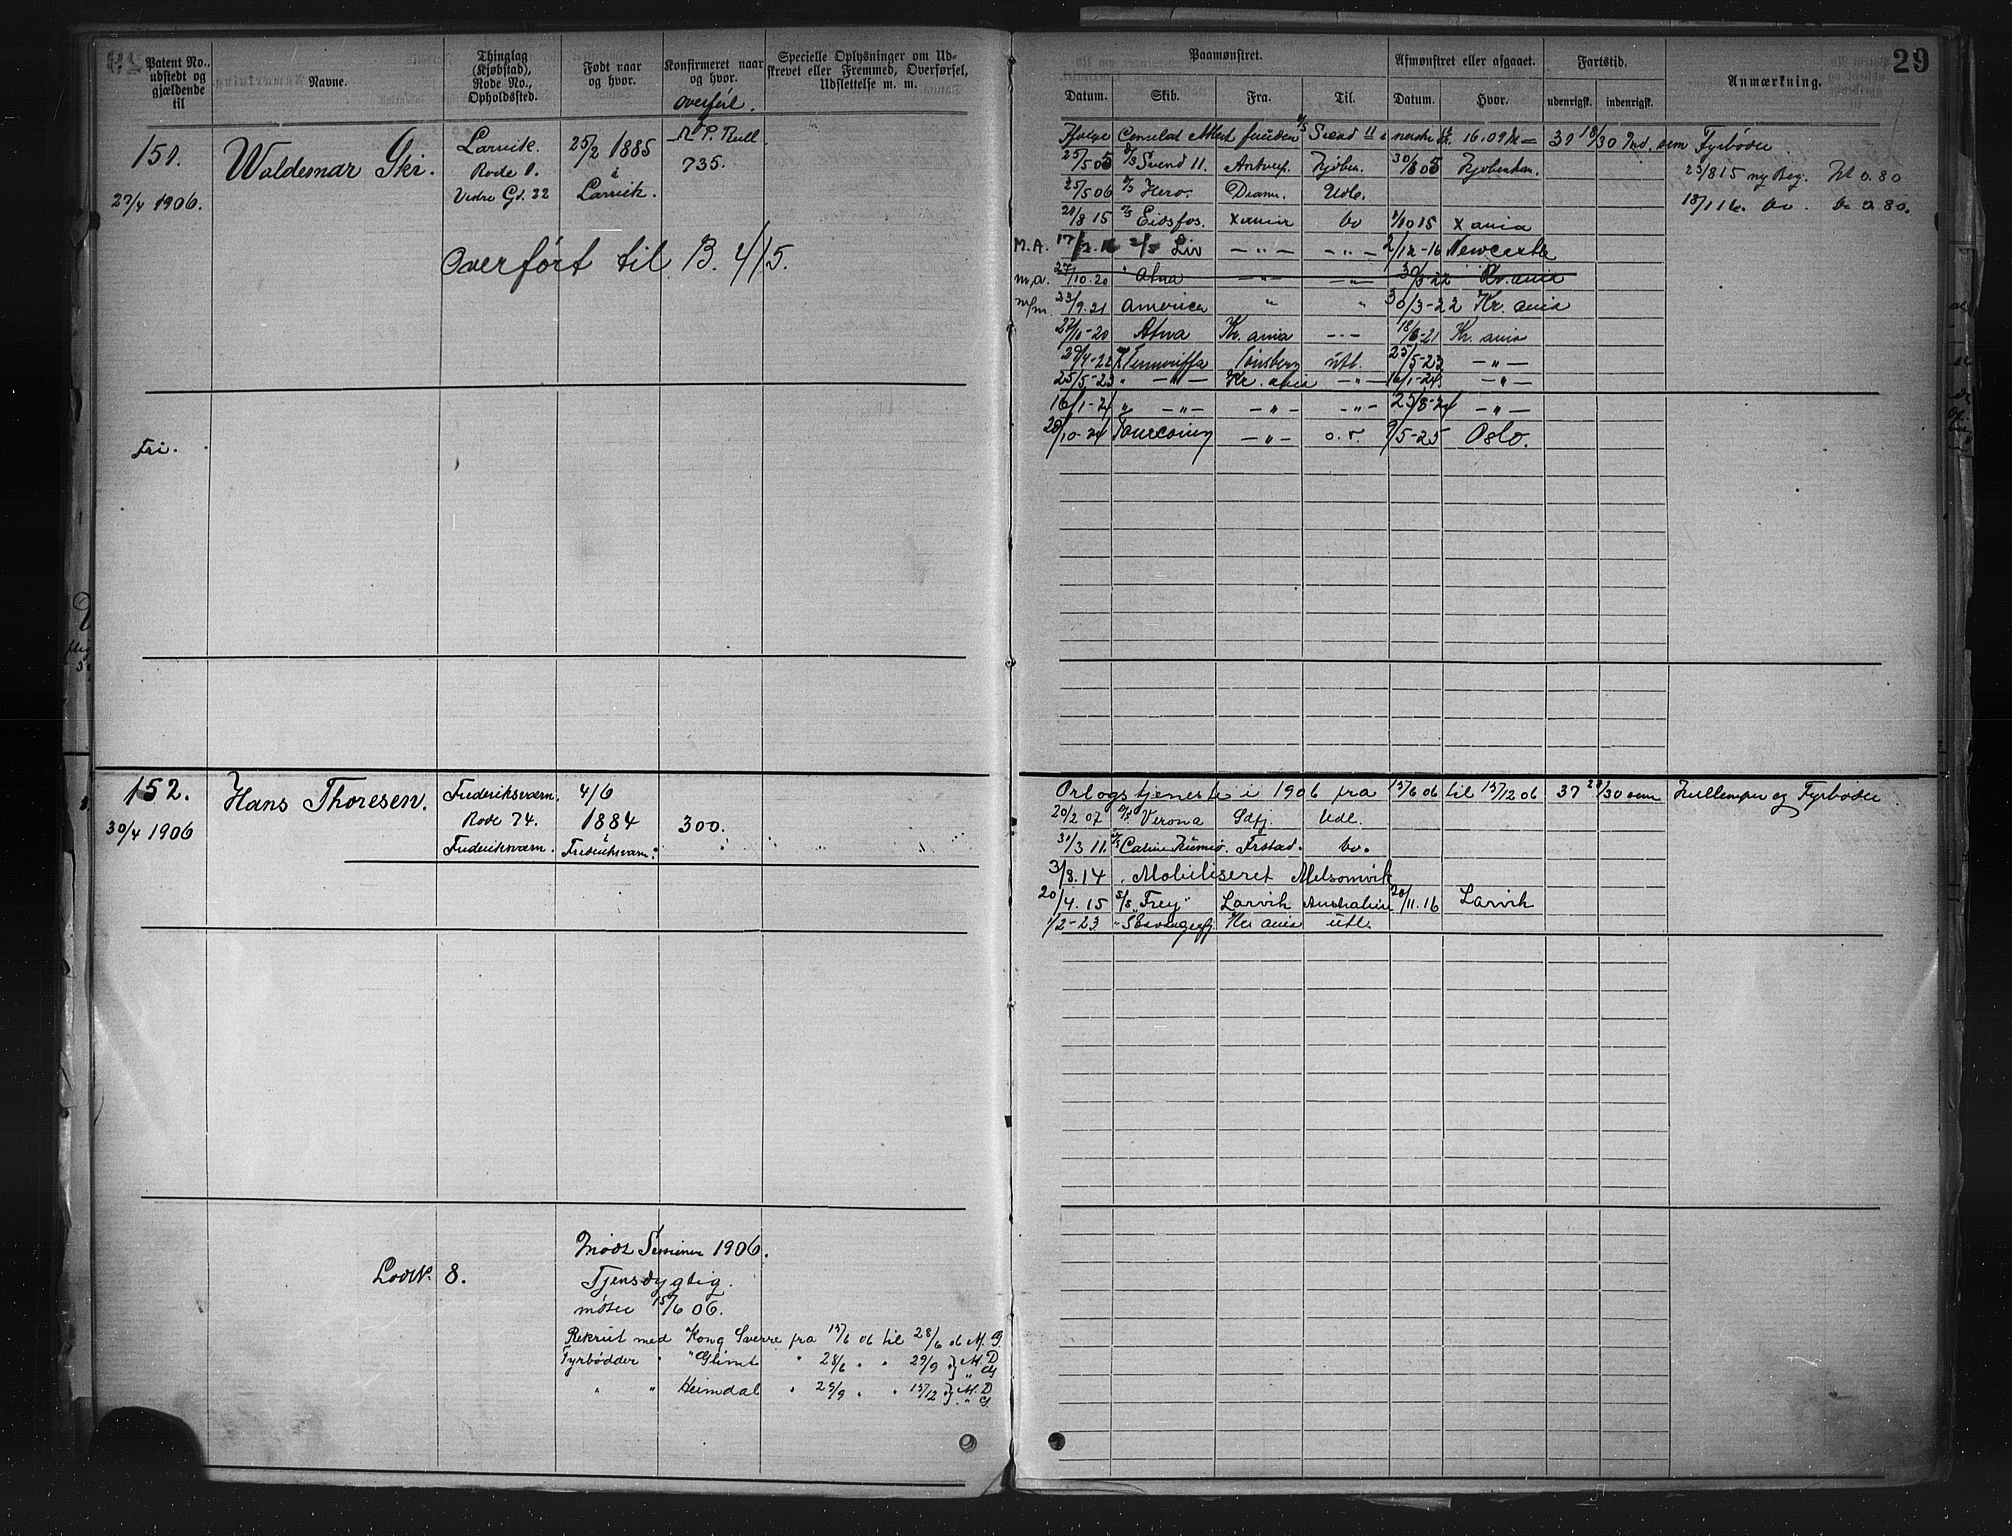 Patent No., udstedt og gjældende til
Navne.
Thinglag (Kjøbstad), Rode No., Opholdssted.
Født naar og hvor.
Konfirmeret naar og hvor.
Specielle Oplysninger om Udstrevet eller Fremmed, Overførsel, Udslettelse m. m.
overført.
151.
27/4 1906.
Waldemar Ski.
Larvik.
Rode 1.
Vestre Gd. 22
25/2 1885
i
Larvik.
A P. Rull
735.
Overført til B. 4/15.
Fri.
152.
30/4 1906
Hans Thoresen.
Frederiksværn.
Rode 74.
Frederiksværn.
4/6
1884
i
Frederiksværn.
300.
Lodd N. 8.
Mødt Session 1906.
Tjensdygtig.
møter 15/6 06.
Rekrut med Kong Sverre fra 15/6 06 til 28/6 06 M. G.
Fyrbødder " "Glimt " 28/6 " " 29/9 M. D
" G
" " Heimdal " 29/9 " " 15/12 M. D
" G.
29
Paamønstret.
Afmønstret eller afgaaet.
Fartstid.
Anmærkning.
Datum.
Skib.
Fra.
Til.
Datum.
Hvor.
udenrigsk.
indenrigsk.
Ifølge Consulat Attest S/S Svend II 30 18/30 Md. som Fyrbøder.
25/5 05 D/S Svend II. Antverp. Kjøben. 30/6 05 Kjøbenhan.
23/8 15 ny Bog. Kr 0.80
25/5 06 D/S Hero. Dram. Udl.
18/1 16. do. do 0.80.
21/8 15 D/S Eidsfos. Xania do 1/10 15 Xania
M.A. 17/2.16 S/S Liv — " — — " — 2/12-16 Newcastle
m.a. 27/10.20 " Atna — " — — " — 30/3-22 Kr.ania
m/m. 23/9.21 America " " 30/3-22 Kr. ania
27/10-20 Atna Kr. ania — " — 18/6-21 Kr. ania
29/4-22 Teneriffa Tønsberg utl. 25/5-23 — " —
25/5-23 " — " — Kr. ania — " — 16/1-24 — " —
16/1-24 " — " — — " — — " — 25/8-24 — " —
28/10-24 Tourcoing — " — o. v. 9/5-25 Oslo.
Orlogstjeneste i 1906 fra 15/6 06 til 15/12 06 37 28/30 som Kullemper og Fyrbøder
20/2 07 D/S Verona Sdfj. Udl.
31/3 11. D/S Frstad. do.
3/8.14 . Mobiliseret Melsomvik
20/4.15 S/S "Frey" Larvik Australien 20/11.16 Larvik
1/2-23 " Stavangerfj Kr ania utl.